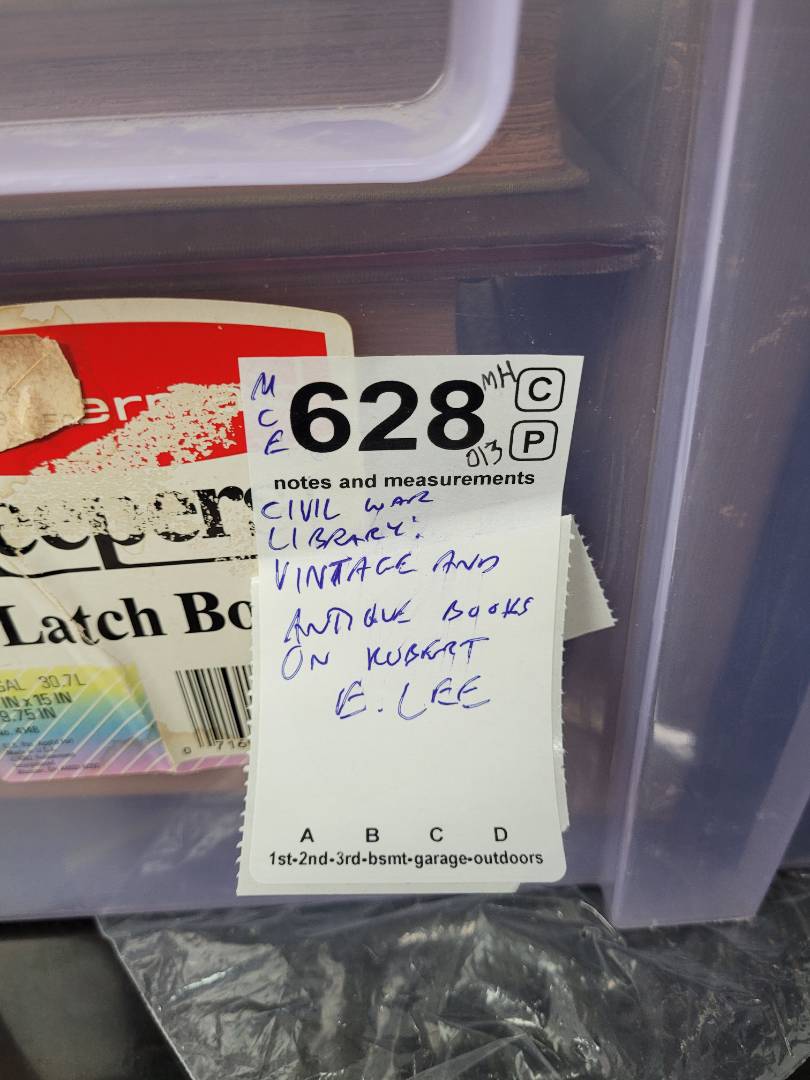 M
C
E
628
MH
C
P
013
notes and measurements
CIVIL WAR
LIBRARY:
VINTAGE AND
ANTIQUE BOOKS
ON ROBERT
E. LEE
A B C D
1st-2nd-3rd-bsmt-garage-outdoors
er
eeper
Latch Bo
GAL 30.7L
IN x 15 IN
9.75 IN
0 716